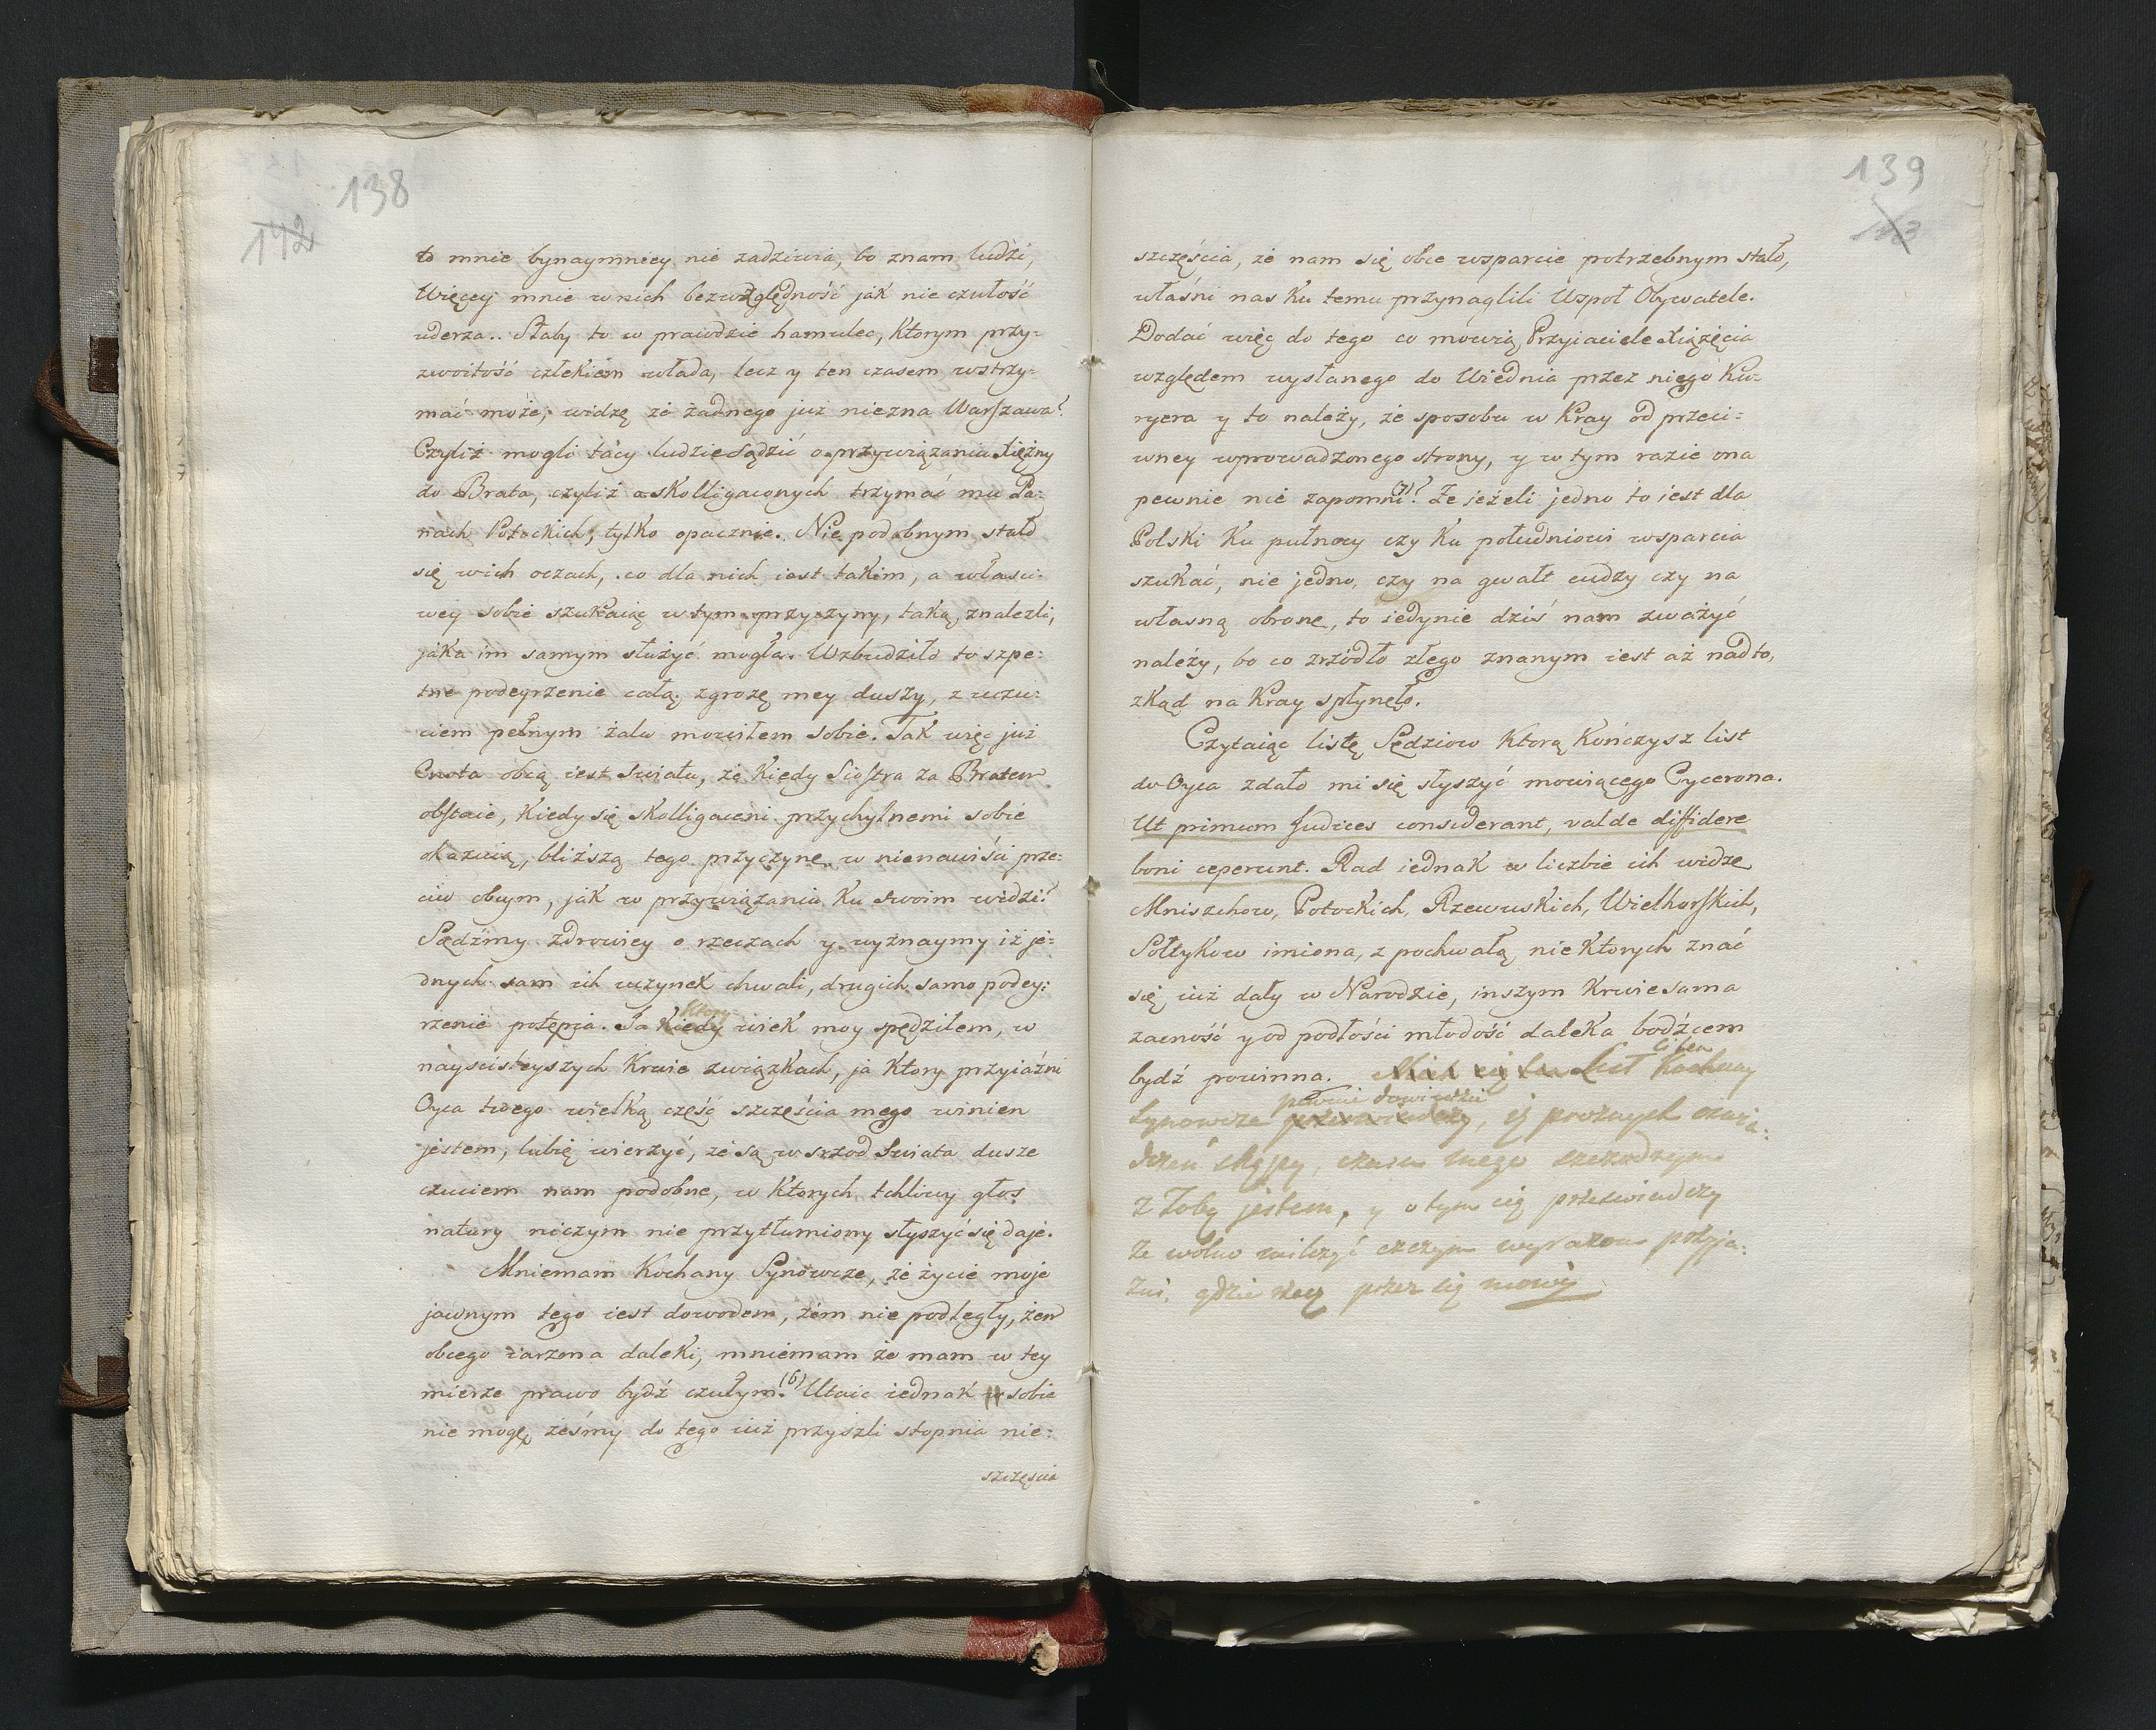 138
142
to mnie bynaymniey nie zadziwia, bo znam ludzi,
Więcey mnie w nich bezwzględność jak nie czułość
uderza.. Słaby to w prawdzie hamulec, Ktorym przy-
zwoitość człekiem włada, lecz y ten czasem wstrzy-
mać może, widzę że żadnego już niezna Warszawa?
Czyliż mogli tácy ludzie sądzić o przywiązaniu Xiężny
do Brata, czyliż o skolligaconych trzymać mu Pa-
nach Potockich, tylko opacznie. Nie podobnym stało
się w ich oczach, co dla nich iest takim, a własci-
wey sobie szukaiąc w tym przyczyny, taką znalezli,
jaka im samym służyć mogła. Wzbudziło to szpe-
tne podeyrzenie całą zgrozę mey duszy, z uczu-
ciem pełnym żalu mowiłem sobie. Tak więc już
Cnota obcą iest swiatu, że Kiedy Siostra za Bratem
obstaie, Kiedy się skolligaceni przychylnemi sobie
okazuią, bliższą tego przyczynę w nienawiści prze-
ciw obcym, jak w przywiązaniu Ku swoim widzi?
Sądźmy zdrowiey o rzeczach y wyznaymy iż je-
dnych sam ich uczynek chwali, drugich samo podey-
rzenie potępia. Ja Kiedy wiek moy spędziłem, w
Ktory
nayscisleyszych Krwie związkach, ja Ktory przyiaźni
Oyca twego wielką część szczęścia mego winien
jestem, lubię wierzyć, że są w srzod Swiata dusze
czuciem nam podobne, w Ktorych tchliwy głos
natury niczym nie przytłumiony słyszyć się daje.
Mniemam Kochany Synowcze, że życie moje
jawnym tego iest dowodem, żem nie podległy, żem
obcego iarzma daleki, mniemam że mam w tey
mierze prawo bydź czułym.(6) Utaic iednak w sobie
nie mogę, żeśmy do tego iuż przyszli stopnia nie-
szczęścia
139
szczęścia, że nam się obce wsparcie potrzebnym stało,
właśni nas Ku temu przynaglili Wspoł Obywatele.
Dodać więc do tego co mówią Przyiaciele Xiążęcia
względem wysłanego do Wiednia przez niego Ku-
ryera y to należy, że sposobu w Kray od przeci-
wney wprowadzonego strony, y w tym razie ona
pewnie nie zapomni(7)? Że ieżeli jedno to iest dla
Polski Ku pułnocy czy Ku południowi wsparcia
szukać, nie jedno, czy na gwałt cudzy czy na
własną obronę, to iedynie dziś nam zważyć
należy, bo co zrzódło złego znanym iest aż nadto,
zkąd na Kray spłynęło.
Czytaiąc listę Sędziow Ktorą Kończysz list
do Oyca zdało mi się słyszyć mowiącego Cycerona.
Ut primum Judices consederant, valde diffidere
boni ceperunt. Rad iednak w liczbie ich widzę
Mniszchow, Potockich, Rzewuskich, Wielhorskich,
Sołtykow imiona, z pochwałą nie Ktorych znać
się iuż dały w Narodzie, inszym Krwie sama
zacność y od podłości młodość daleka bodźcem
bydź powinna. List Kochany
Synowcze , iż prożnych
z Tobą jestem, y o tym cię przeświadczy
że wolno milczyć czczym wyrazom przyja-
zni, gdzie rzecz przez się mowi